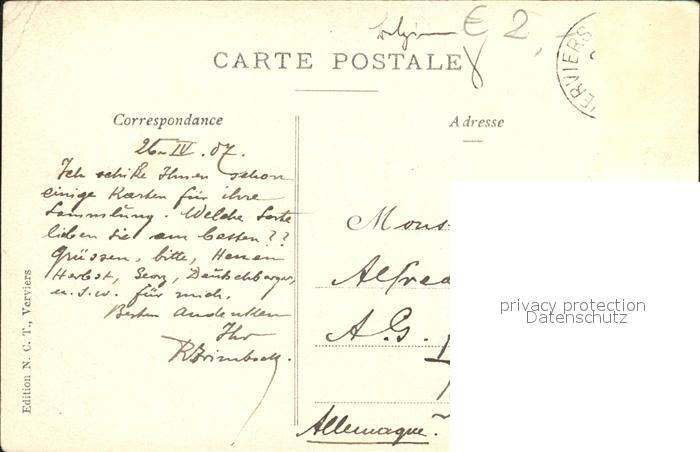 Belgien € 2,-
CARTE POSTALE
VERVIERS
Correspondance
Adresse
26. IV. 07.
Ich schike Ihnen schon
einige Karten für ihre
Sammlung. Welche Sorte
lieben Sie am besten ??
Grüssen, bitte, Herren
Herbst, Georg, Deutschberger,
u.s.w. für mich.
Besten Andenken
Ihr
Mons
Alfred
A. G.
Allemagne.
privacy protection
Datenschutz
Edition N. C. T., Verviers